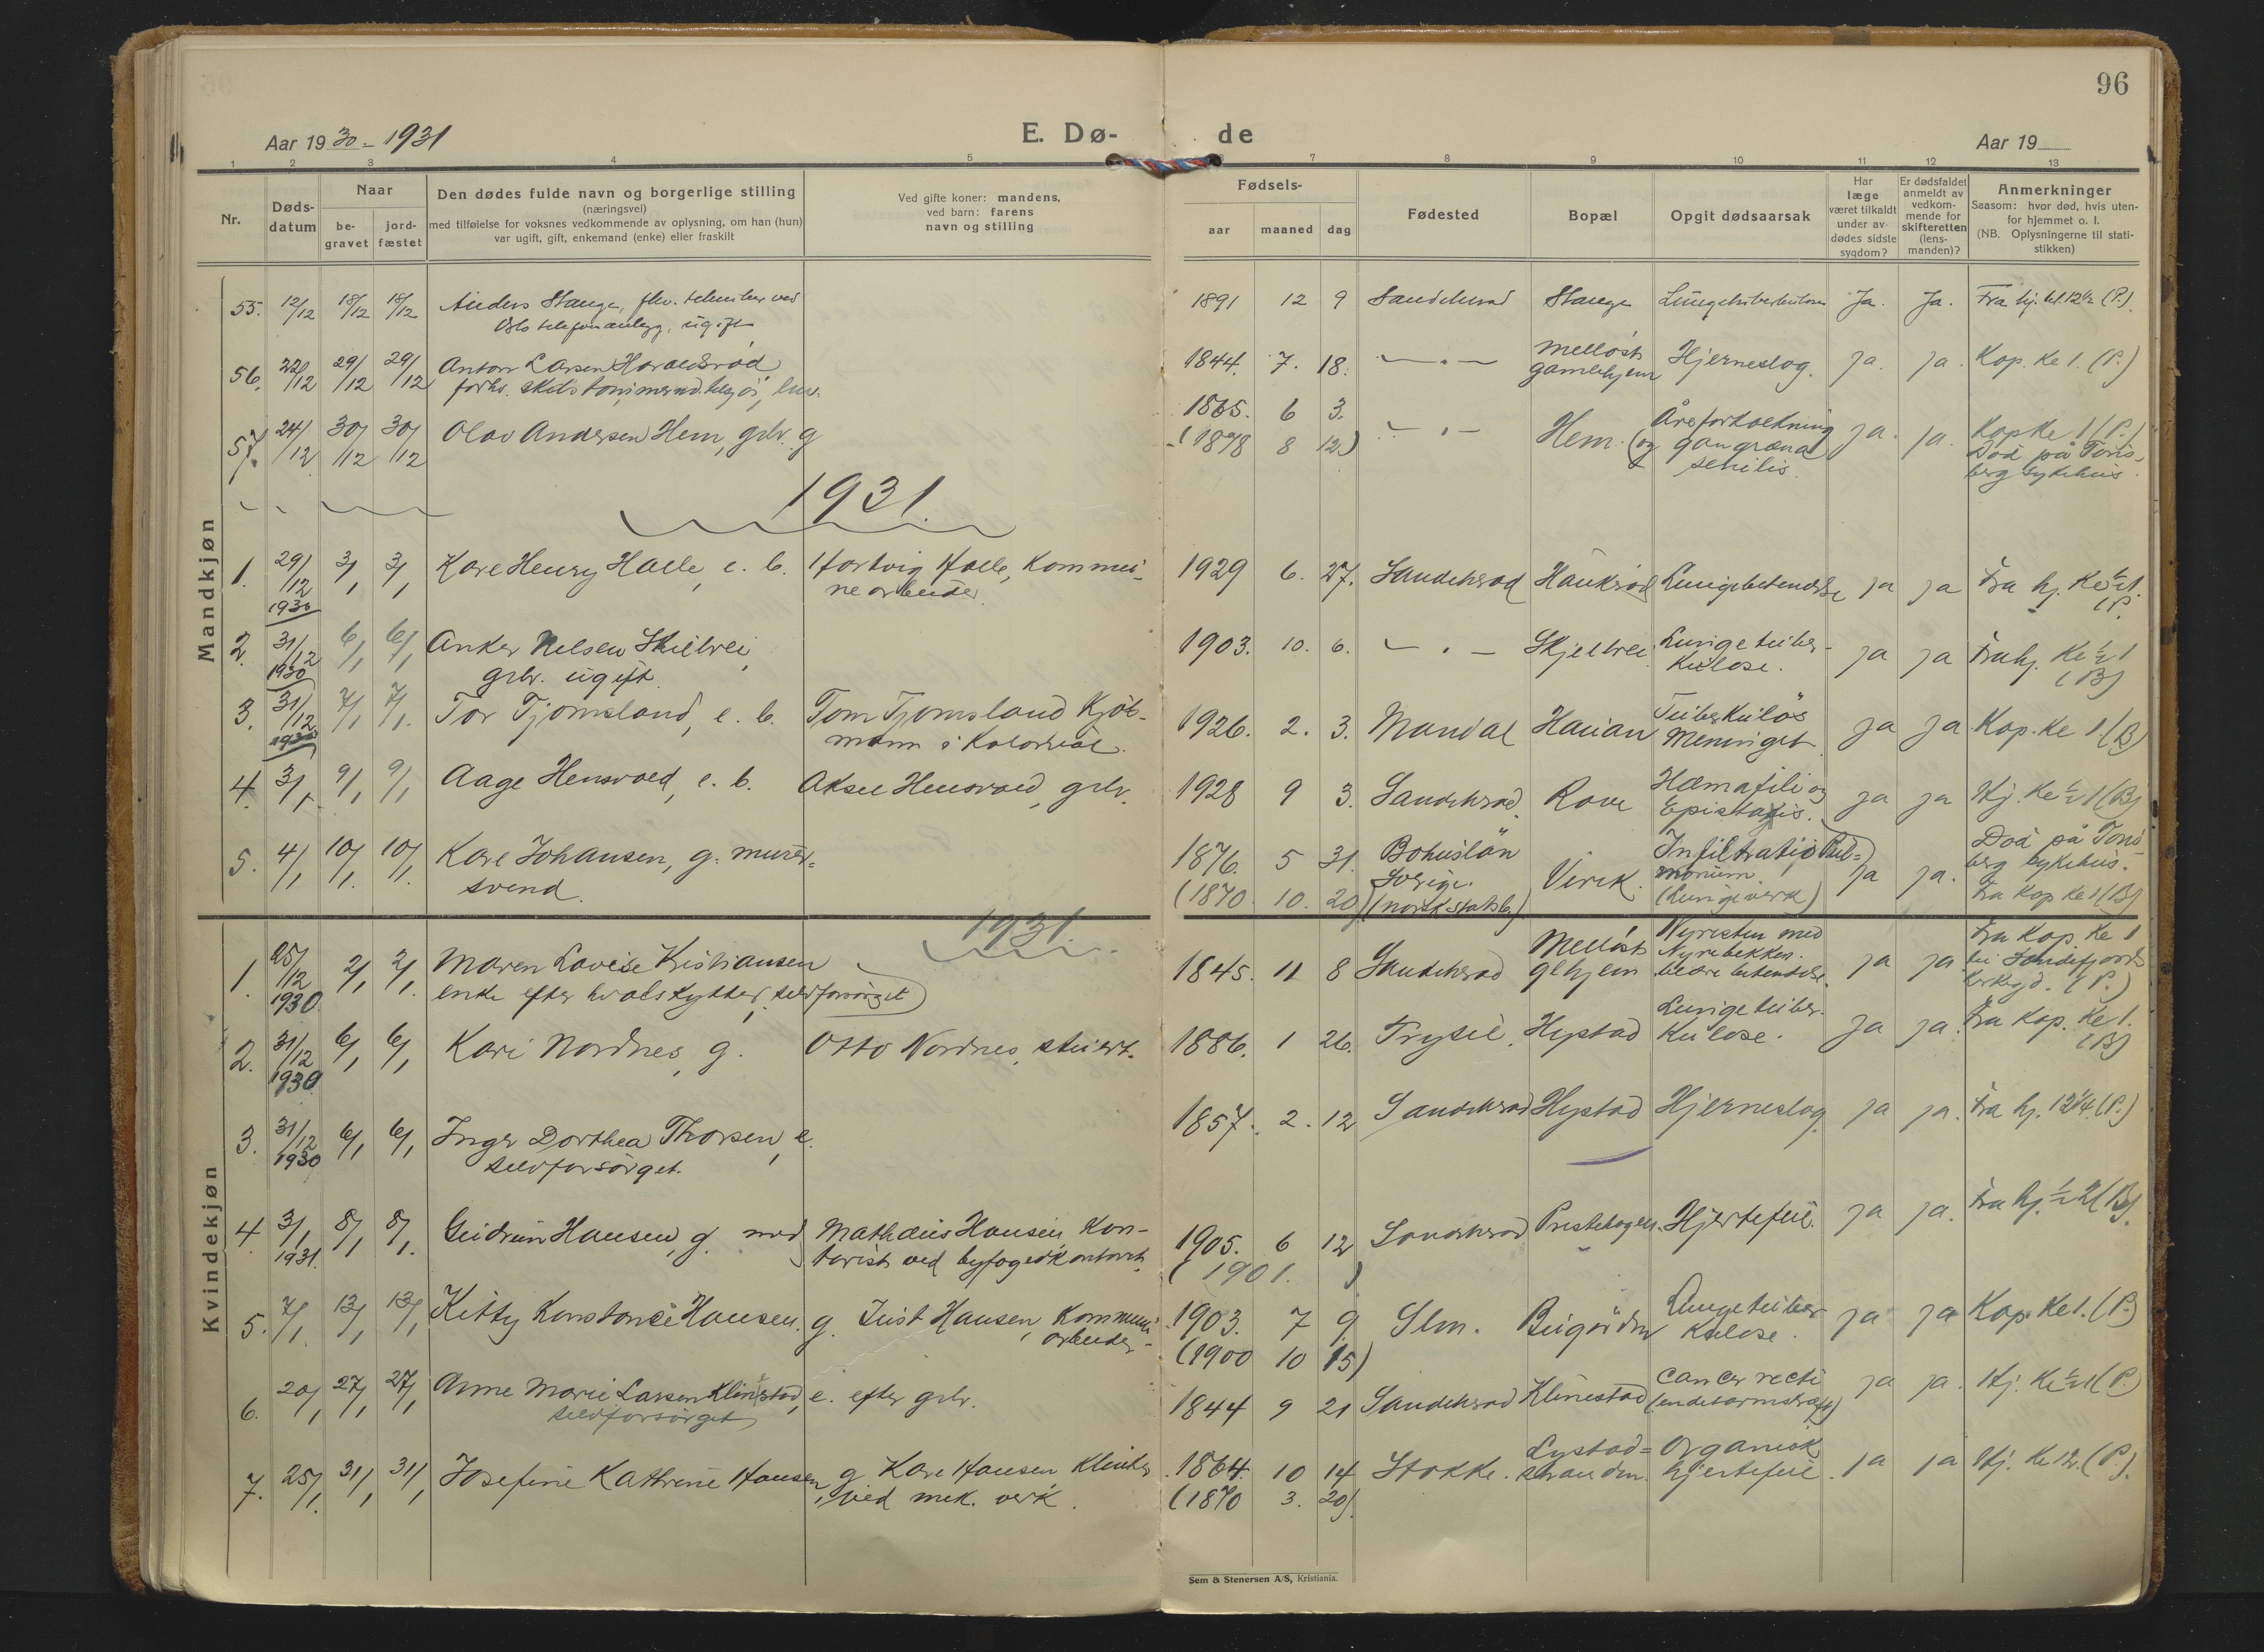 96
Aar 1930-1931
E. Dø- de
Aar 19
1 2 3 4 5 7 8 9 10 11 12 13
Nr.
Døds-
datum
Naar
be-
gravet
jord-
fæstet
Den dødes fulde navn og borgerlige stilling
(næringsvei)
med tilføielse for voksnes vedkommende av oplysning, om han (hun)
var ugift, gift, enkemand (enke) eller fraskilt
Ved gifte koner: mandens,
ved barn: farens
navn og stilling
Fødsels-
aar maaned dag
Fødested
Bopæl
Opgit dødsaarsak
Har
læge
været tilkaldt
under av-
dødes sidste
sygdom?
Er dødsfaldet
anmeldt av
vedkom-
mende for
skifteretten
(lens-
manden)?
Anmerkninger
Saasom: hvor død, hvis uten-
for hjemmet o. l.
(NB. Oplysningerne til stati-
stikken)
Mandkjøn
55. 12/12 18/12 18/12 Anders Stange, ved
Oslo telefonanlegg, ugift
1891 12 9 Sandeherad Stange Lungetuberkulose Ja. Ja. Fra hj. kl 12½ (P.)
56. 22/12 29/12 29/12 Anton Larsen Haraldsrød
forhv. skibstømmermd.
1844. 7. 18. — " — Melløst
gamlehjem Hjerneslag. ja. ja. Kap. Kl 1. (P.)
57. 24/12 30/12 30/12 Olav Andersen Hem, grbr. g
1865. 6 3.
(1878 8 12) — " — Hem. Åreforkalkning
(og gangræna
senilis. ja. ja. Kap Kl 1 (P.)
Död på Töns-
berg sykehus.
1931.
1. 29/12 3/1 3/1 Kåre Henry Halle, e. b. Hartvig Halle, Kommu-
1930 nearbeider.
1929 6. 27. Sandeherad Haukrød Lungebetendelse ja ja Fra hj. Kl ½ 1.
(P.
2. 31/12 6/1 6/1 Anker Nelsen Skielvei,
1930 grbr. ugift.
1903. 10. 6. — " — Skjelvei Lungetuber-
kulose. ja ja Fra hj. Kl ½ 1
(B)
3. 31/12 7/1 7/1. Tor Tjomsland, e. b. Tom Tjomsland Kjöb-
1930 mann i Kolonial.
1926. 2. 3. Mandal Haugan Tuberkulös
Meninget. ja ja Kap. Kl 1 (B)
4. 3/1. 9/1 9/1 Aage Hensvold, e. b. Aksel Hensvold, grbr.
1928 9 3. Sandeherad. Rove Hæmafili og
Epistaxis. ja ja Hj. Kl ½ 1 (B)
5. 4/1 10/1. 10/1. Kåre Johansen, g. murer-
svend.
1876. 5 31. Bohuslän
Sverige.
(1870. 10. 20) (norsk statsb.) Virik. Infiltratio Pul=
monum
(Lungeverk) ja ja. Död på Töns-
berg sykehus.
Fra Kap Kl 1 (B)
Kvindekjøn
1931.
1. 25/12 2/1 2/1. Maren Lovise Kristiansen
1930. enke efter hvalskytter, selvforsörget
1845. 11 8 Sandeherad Melløst
glhjem Nyresten med
Nyrebekken-
blære betendelse. ja ja Fra Kap. Kl 1
til Sandefjords
kirkegd. (P.)
2. 31/12 6/1 6/1 Kari Nordnes, g. Otto Nordnes, stuert.
1930.
1886. 1 26. Trysil. Hystad Lungetuber-
kulose. ja ja. Fra Kap. Kl 1.
(B)
3. 31/12 6/1 6/1 Inger Dorthea Thorsen, e.
1930 selvforsörget.
1857. 2. 12 Sandeherad Hystad Hjerneslag ja ja. Fra hj. 12¼. (P.)
4. 3/1 8/1 8/1. Gudrun Hansen, g. med Mathæus Hansen, Kon-
1931. torist ved byfogedkontoret.
1905. 6 12 Sandeherad Prestehagen. Hjertefeil. ja ja. Fra hj. ½ 2 (B).
(1901. )
5. 7/1. 13/1 13/1 Kitty Konstanse Hansen. g. Just Hansen, Kommune-
arbeider
1903. 7 9. Slm. Bugården Lungetuber-
kulose. ja ja Kap. Kl 1. (P.)
(1900 10 15)
6. 20/1 27/1 27/1 Anne Marie Larsen Klinestad, e. efter grbr.
selvforsörget
1844 9 21 Sandeherad Klinestad Cancer recti
(endetarmskræft) ja ja. Hj. Kl ½ 1 (P.)
7. 25/1. 31/1 31/1 Josefine Kathrine Hansen, g. Kåre Hansen Klinker
ved mek. verk.
1864. 10 14 Stokke. Lystad=
stranden. Organisk
hjertefeil. ja ja Hj. Kl 12. (P.).
(1870 3. 20)
Sem & Stenersen A/S, Kristiania.